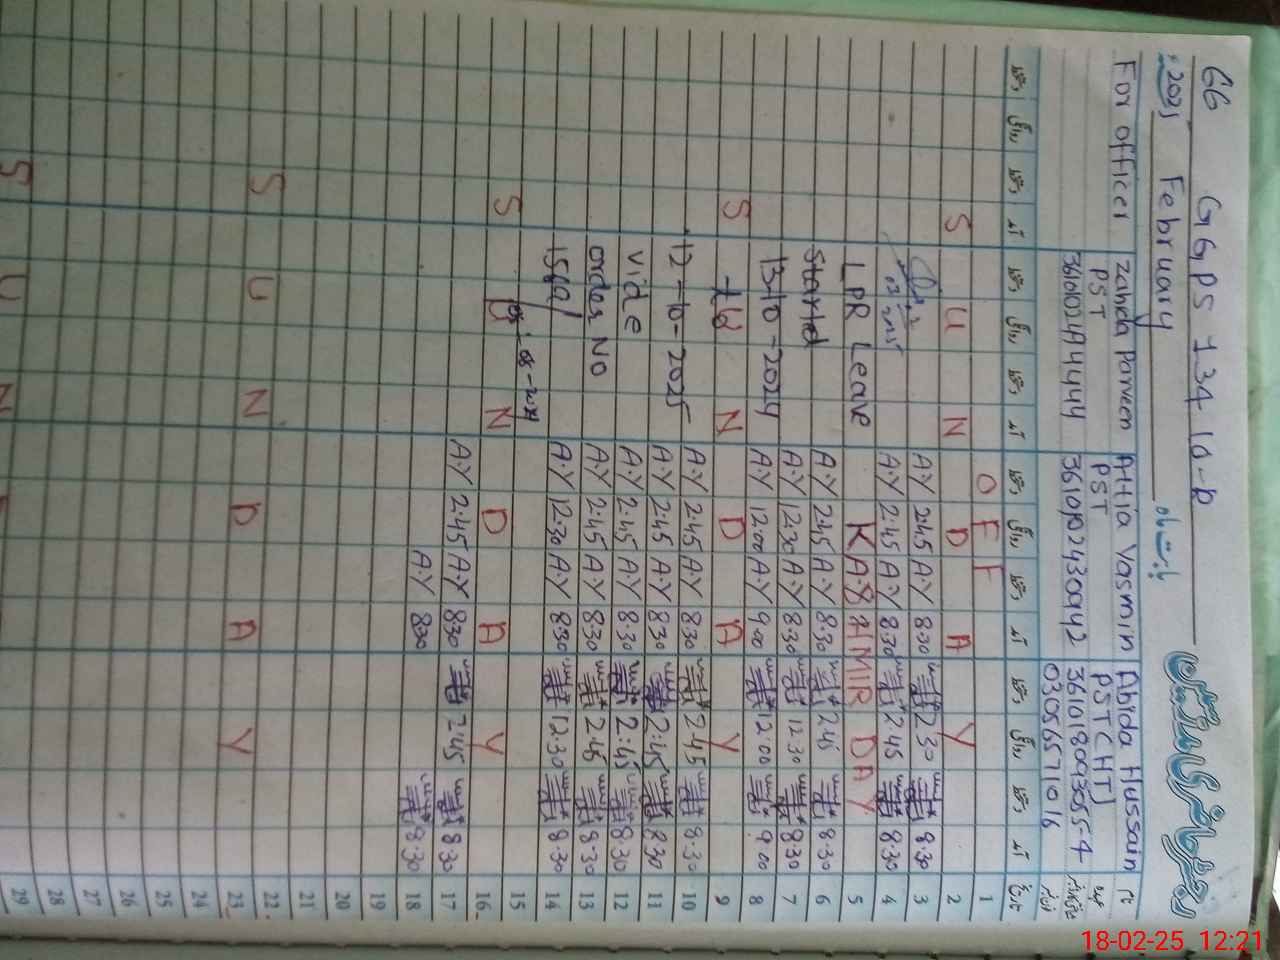 66 GGPS 134 10-R رجسٹر حاضری مدرسین
2025ء February بابت ماہ
For officer Zahida Parveen Attia Yasmin Abida Hussain نام
PST PST PST(HT) عہدہ
361010243000942 3610180093055-4
03056571016
دستخط روانگی دستخط آمد دستخط روانگی دستخط آمد دستخط روانگی دستخط آمد دستخط روانگی دستخط آمد تاریخ
OFF 1
S U N D A Y 2
A.Y 2:45 A.Y 8:30 2:30 8:30 3
A.Y 2:45 A.Y 8:30 2:45 8:30 4
LPR Leave KASHMIR DAY 5
Started A.Y 2:45 A.Y 8:30 2:45 8:30 6
13-10-2024 A.Y 12:30 A.Y 8:30 12:30 8:30 7
A.Y 12:00 A.Y 9:00 12:00 9:00 8
S U N D A Y 9
12-10-2025 A.Y 2:45 A.Y 8:30 2:45 8:30 10
A.Y 2:45 A.Y 8:30 2:45 8:30 11
vide A.Y 2:45 A.Y 8:30 2:45 8:30 12
order No A.Y 2:45 A.Y 8:30 2:45 8:30 13
A.Y 12:30 A.Y 8:30 12:30 8:30 14
15
S U N D A Y 16
A.Y 2:45 A.Y 8:30 2:45 8:30 17
A.Y 8:30 8:30 18
19
20
21
22
S U N D A Y 23
24
25
26
27
28
S U N 29
18-02-25 12:21